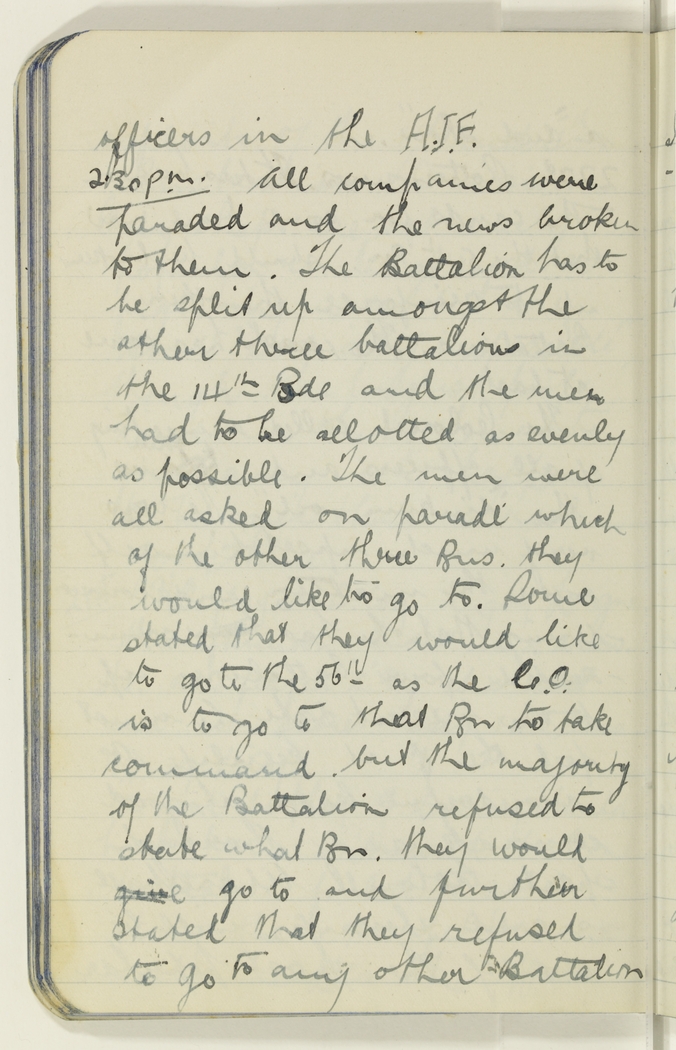 officers in the A.I.F.
2.30 p.m. All companies were
paraded and the news broken
to them. The Battalion has to
be split up amongst the
other three battalions in
the 14th Bde and the men
had to be allotted as evenly
as possible. The men were
all asked on parade which
of the other three Bns. they
would like to go to. Some
stated that they would like
to go to the 56th as the C.O.
is to go to that Bn to take
command. but the majority
of the Battalion refused to
state what Bn. they would
give go to and further
stated that they refused
to go to any other Battalion